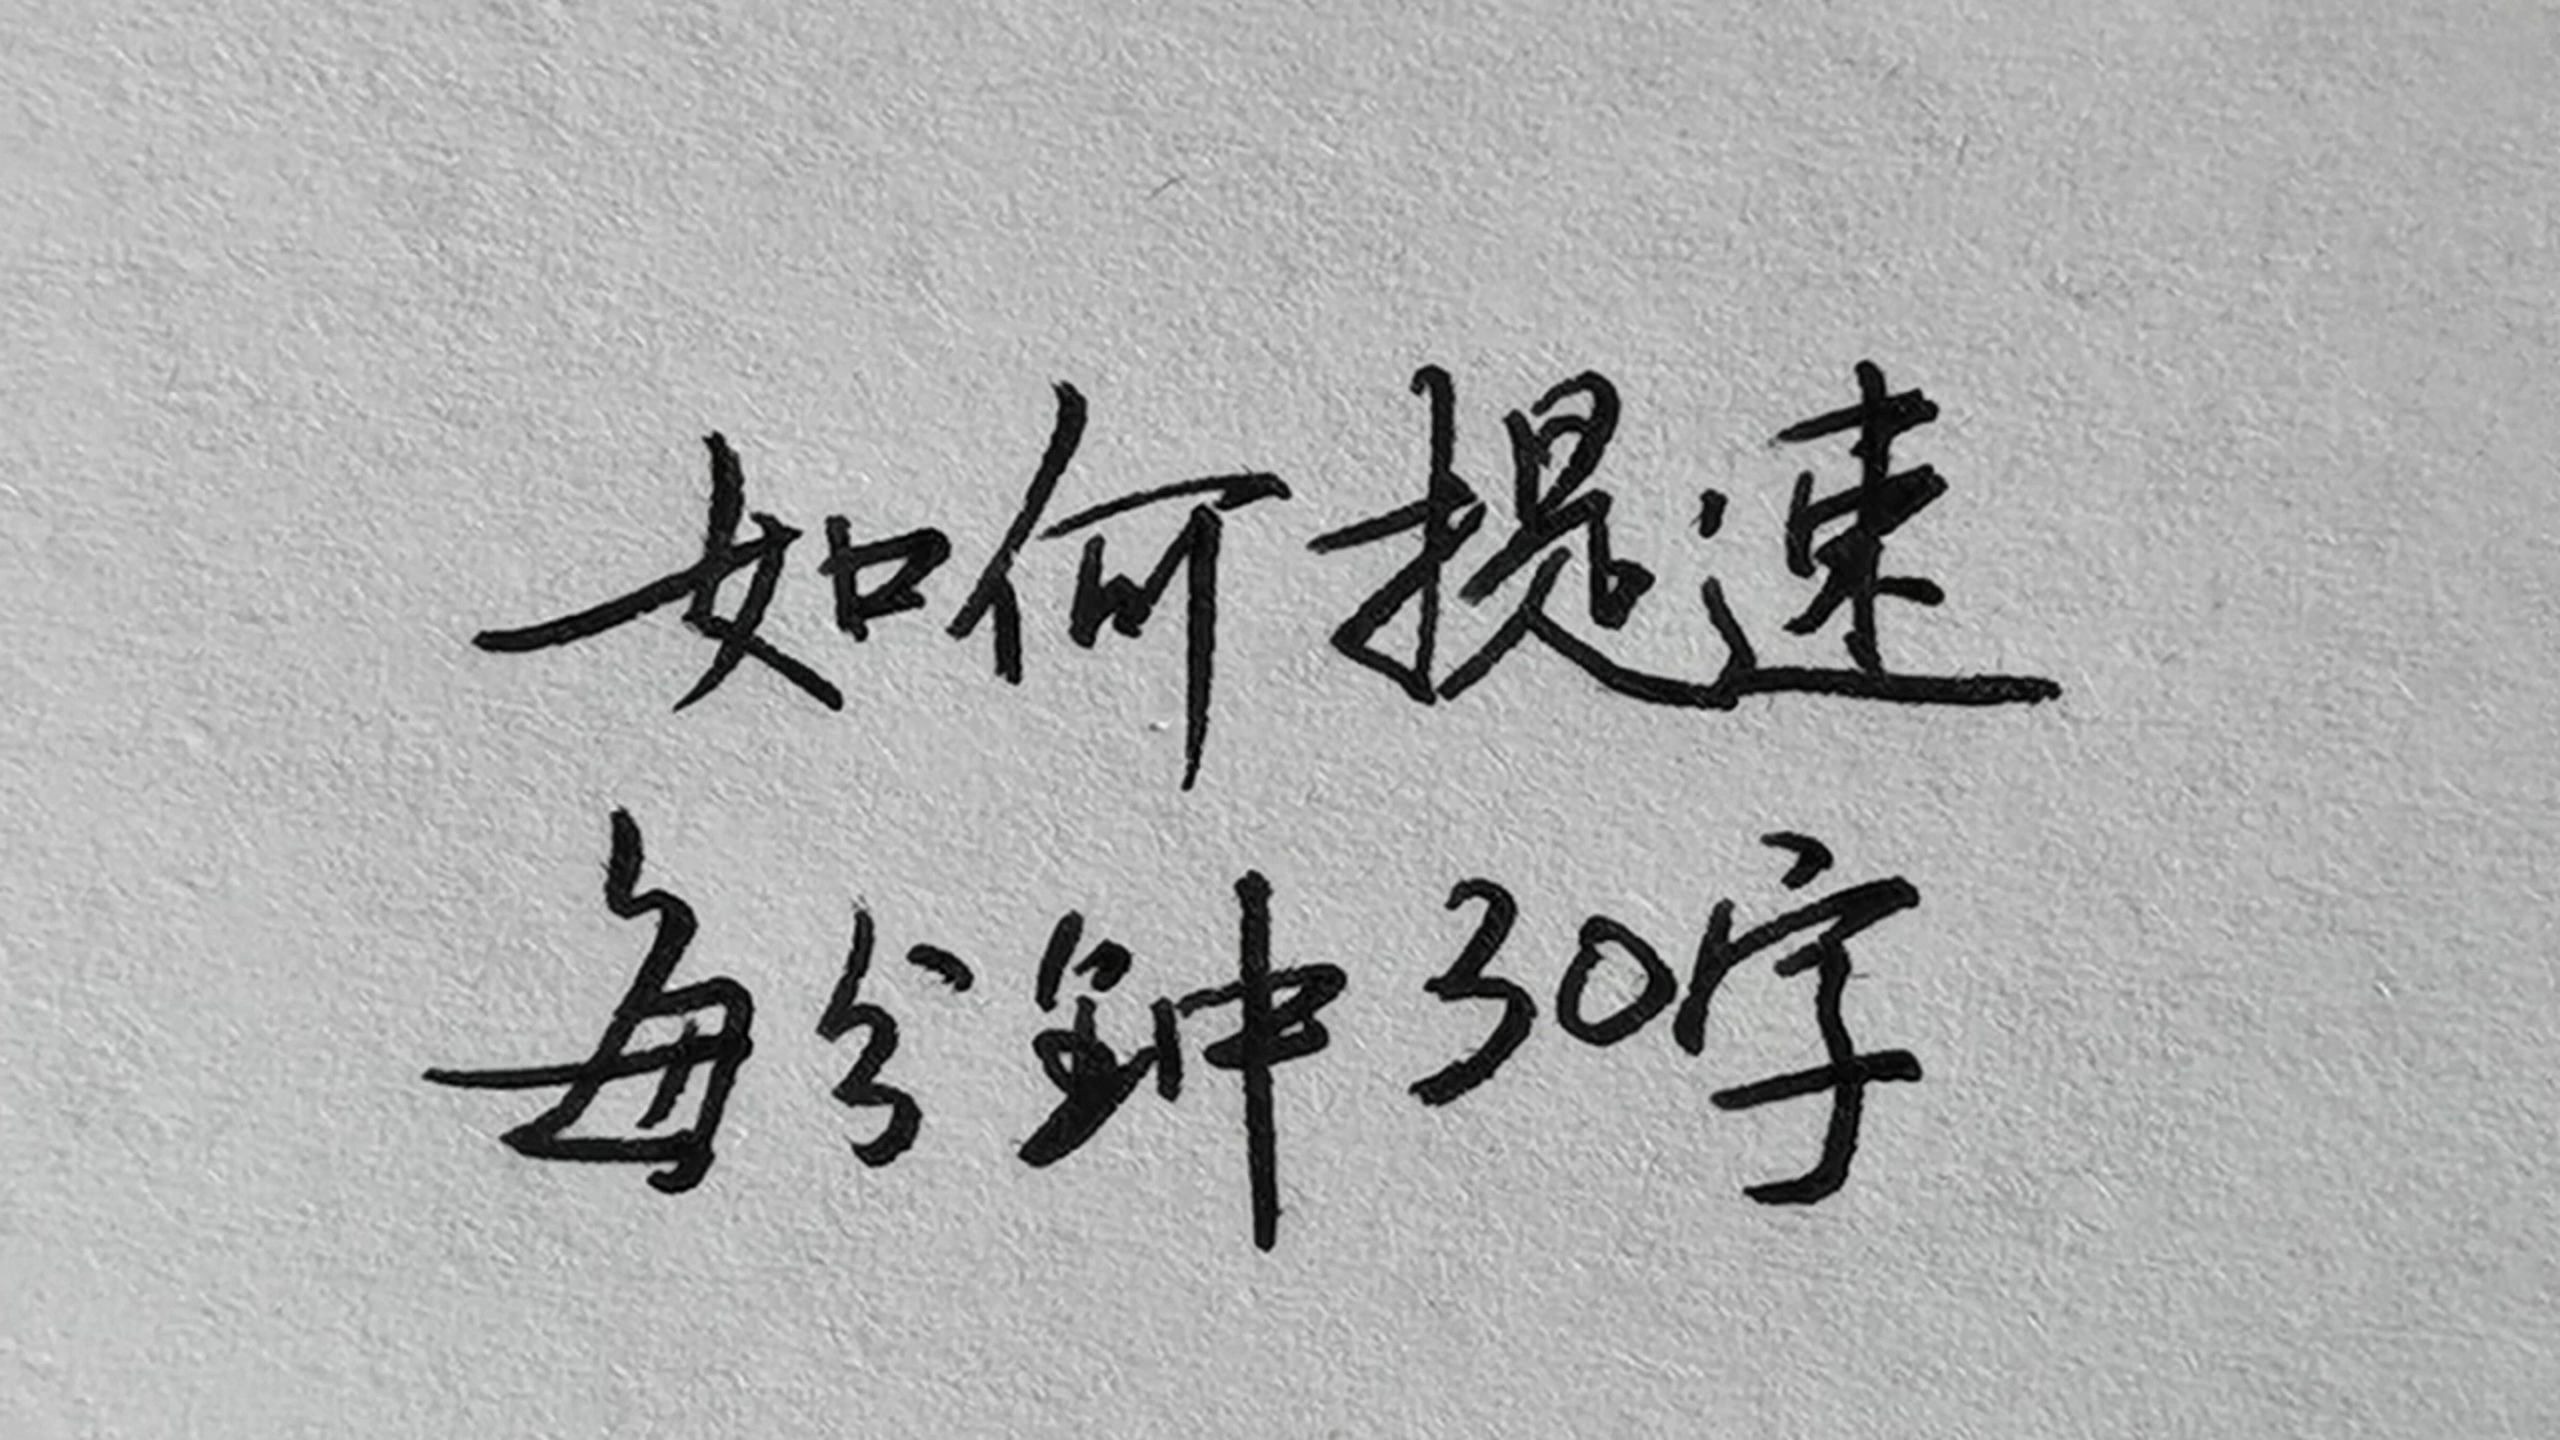 如何提速
每分钟30字